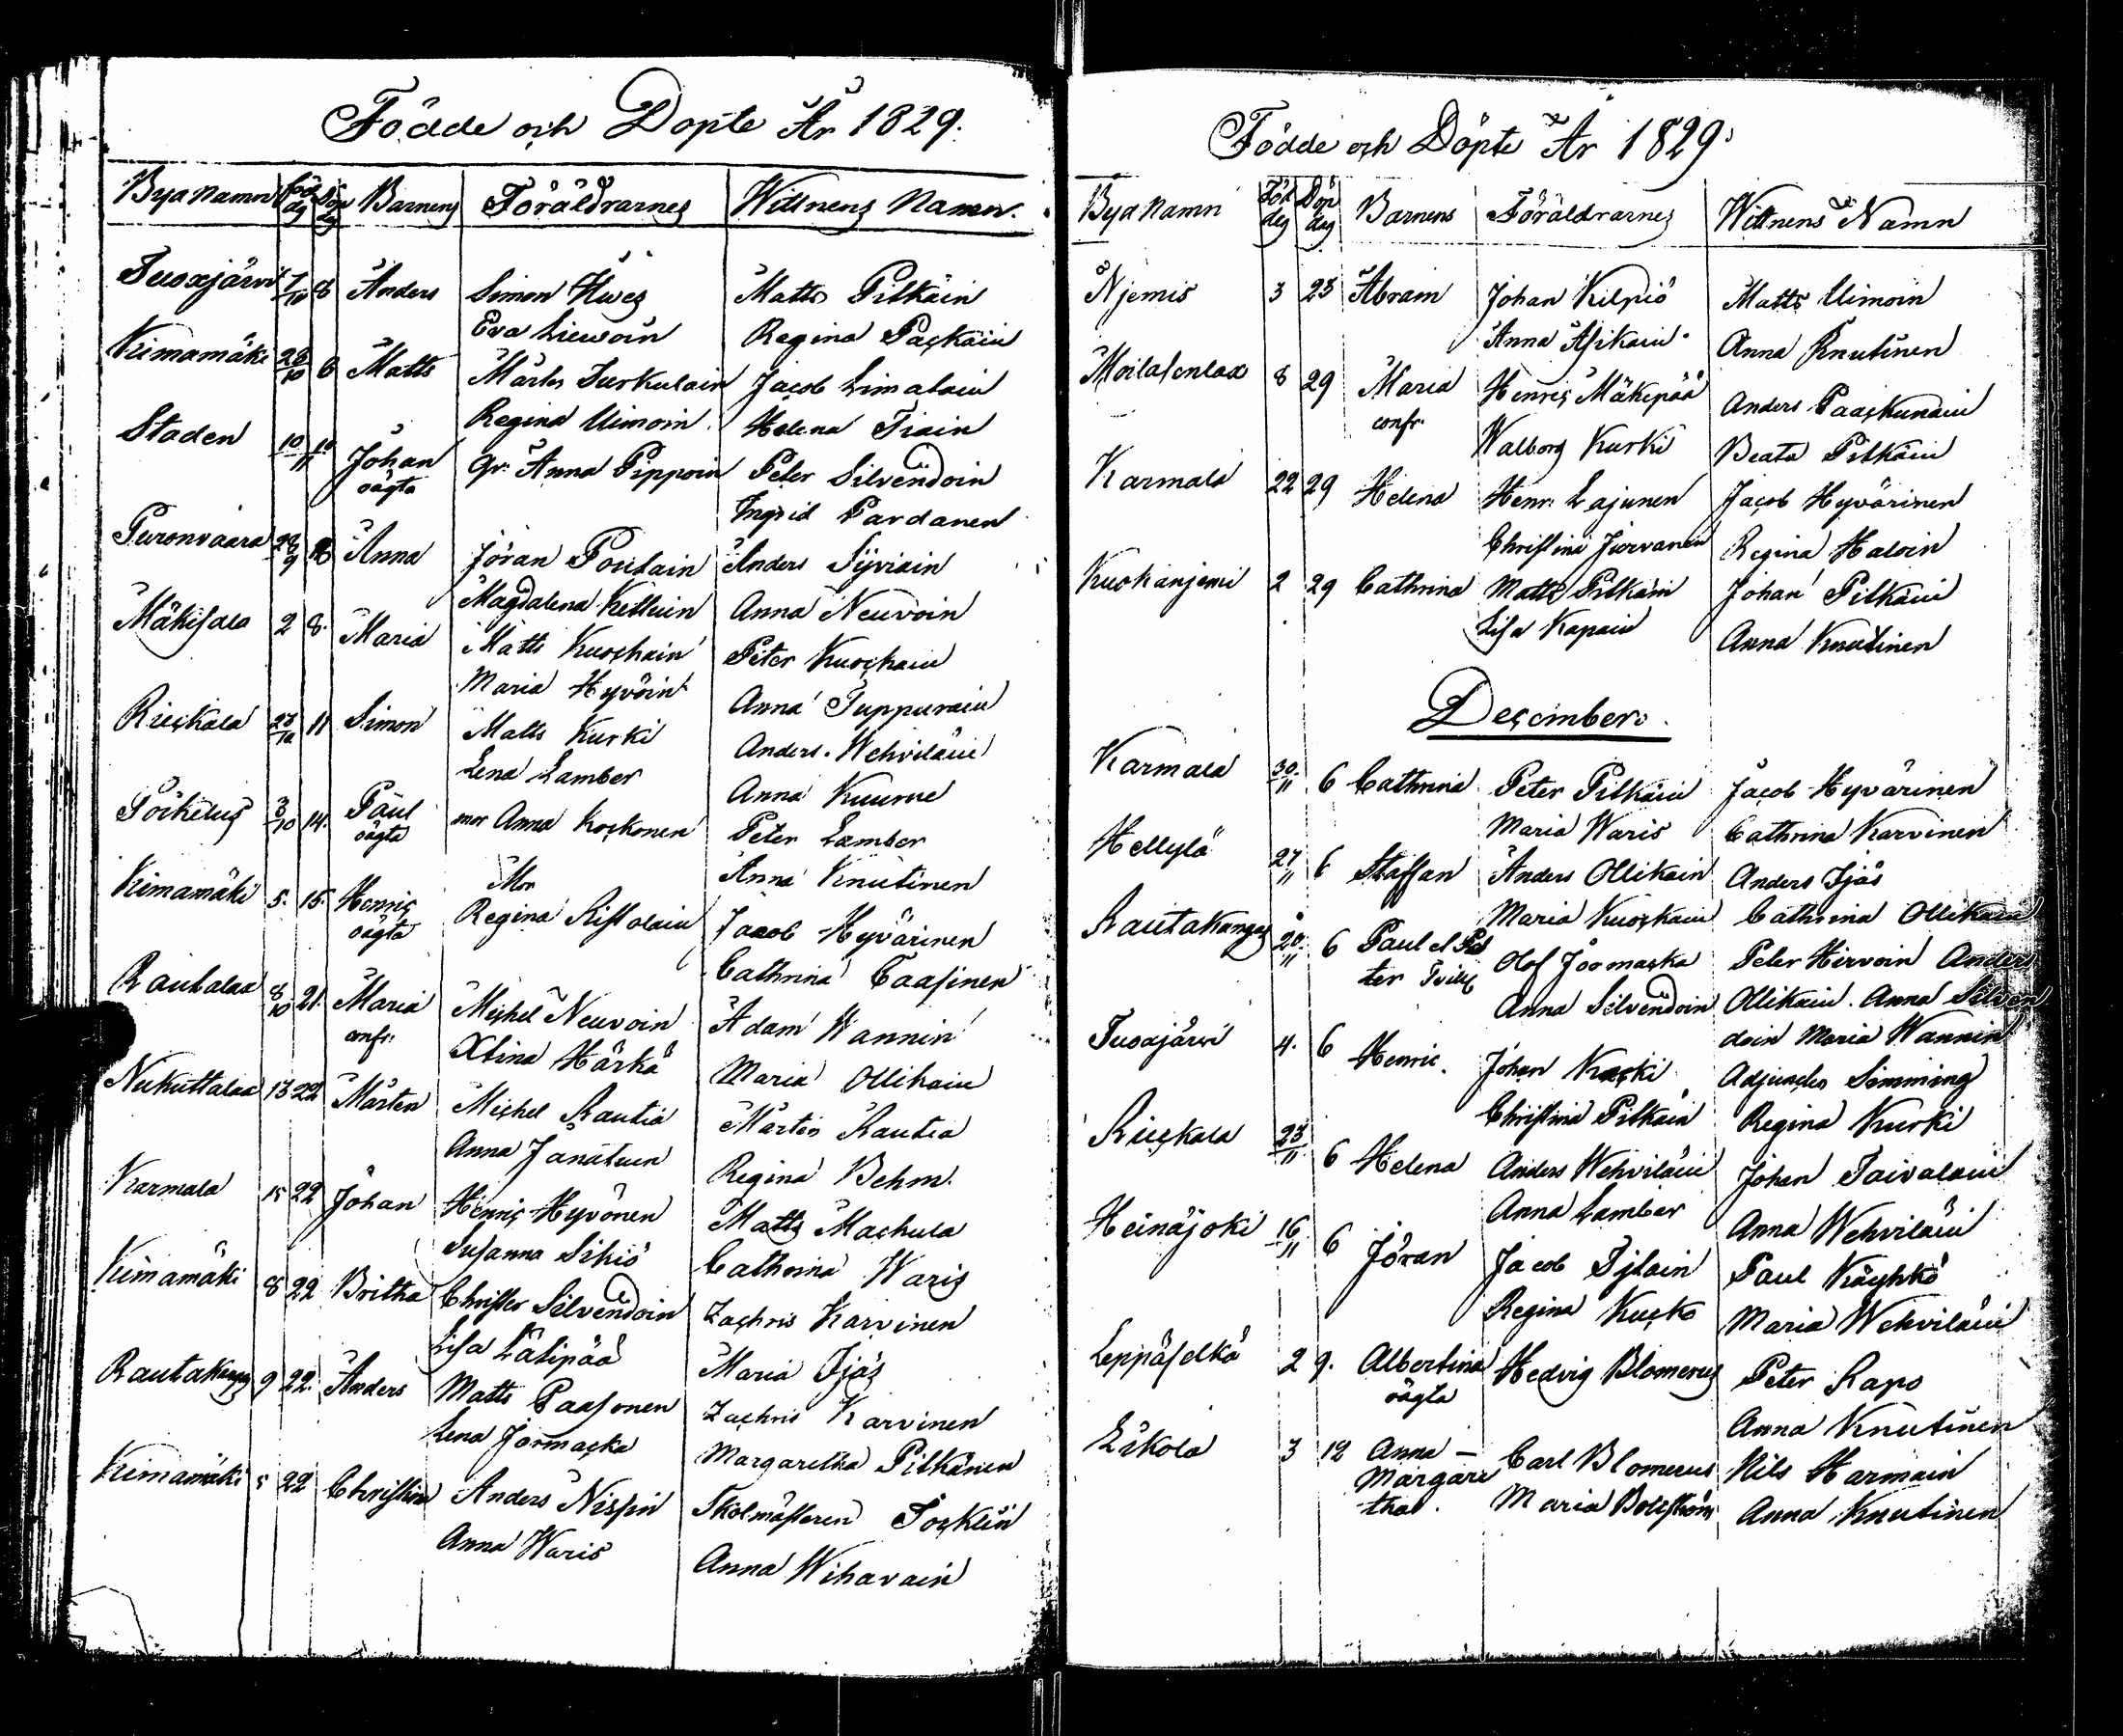 Födde och Dopte År 1829.
Bya namn Föd dg Döp dg Barnens Föräldrarnes Wittnens Namn.
Tuoxjärvi 7/10 8 Anders Simon Hwes Matts Pitkäin
Eva Liewoin Regina Packain
Kiimamäki 28/10 8 Matts Mårten Turkulain Jacob Simolain
Regina Uimoin Helena Tiain
Staden 10/11 10 Johan Qv: Anna Pippoin Peter Silvendoin
oägta Ingrid Pardanen
Puronvaara 28/9 Anna Jöran Poutain Anders Syviain
Magdalena Kettuin Anna Neuvoin
Mäkisalo 2 8. Maria Matts Kuoskain Peter Kuoskain
Maria Hyvöin Anna Tuppurain
Rieskala 28/10 11 Simon Matts Kurki Anders Wehviläin
Lena Lamber Anna Kuurne
3/10 14. Paul mor Anna Koskonen Peter Lamber
oägta Anna Knutinen
Kiimamäki 5. 15. Henric Mor Regina Ristolain Jacob Hyvärinen
oägta Cathrina Paasinen
Rautalax 8/10 21. Maria Michel Neuvoin Adam Wannin
confr. Xtina Härkä Maria Ollikain
Nukuttalax 13 22 Mårten Michel Rautia Mårten Rautia
Anna Janatuin Regina Behm.
Karmala 15 22 Johan Henric Hyvönen Matts Machula
Susanna Sikiö Cathrina Waris
Kiimamäki 8 22 Britha Christer Silvendoin Zachris Karvinen
Lisa Lätipää Maria Ijäs
Rautakangas 9 22. Anders Matts Paasonen Zachris Karvinen
Lena Jormacka Margaretha Pitkänen
Kiimamäki 5 22 Christina Anders Nissin Skolmästeren Tocklin
Anna Waris Anna Wihavain
Födde och Döpte År 1829.
Bya Namn Föd dag Döp dag Barnens Föräldrarnes Wittnens Namn
Njemis 3 23 Abram Johan Kilpiö Matts Uimoin
Anna Asikain Anna Knutinen
Moilasenlax 8 29 Maria Henric Mäkipää Anders Paaskunain
confr. Walborg Kurki Beata Pitkäin
Karmala 22 29 Helena Henr: Lajunen Jacob Hyvärinen
Christina Jurvanen Regina Haloin
Kuokanjemi 2 29 Cathrina Matts Pitkäin Johan Pitkäin
Lisa Kapain Anna Knutinen
December.
Karmala 30/11 6 Cathrina Peter Pitkäin Jacob Hyvärinen
Maria Waris Cathrina Karvinen
Hellylä 27/11 6 Staffan Anders Ollikain Anders Ijäs
Maria Kuoskain Cathrina Ollikain
Rautakangas 20/11 6 Paul et Pet Olof Jormacka Peter Hirvoin Anders
ter Tvill. Anna Silvendoin Ollikain. Anna Silven
doin Maria Wannin
Tuoxjärvi 4. 6 Henric Johan Adjuncten Simming
Christina Pitkäin Regina Kurki
Rieskala 23/11 6 Helena Anders Wehviläin Johan Taivalain
Anna Lamber Anna Wehviläin
Heinäjoki 16/11 6 Jöran Jacob Paul Käyhkö
Regina Maria Wehviläin
Leppäselkä 2 9. Albertina Hedvig Blomerus Peter Rapo
oägta Anna Knutinen
Läskelä 3 12 Anna – Carl Blomerus Nils Harmain
Margare Maria Anna Knutinen
tha.